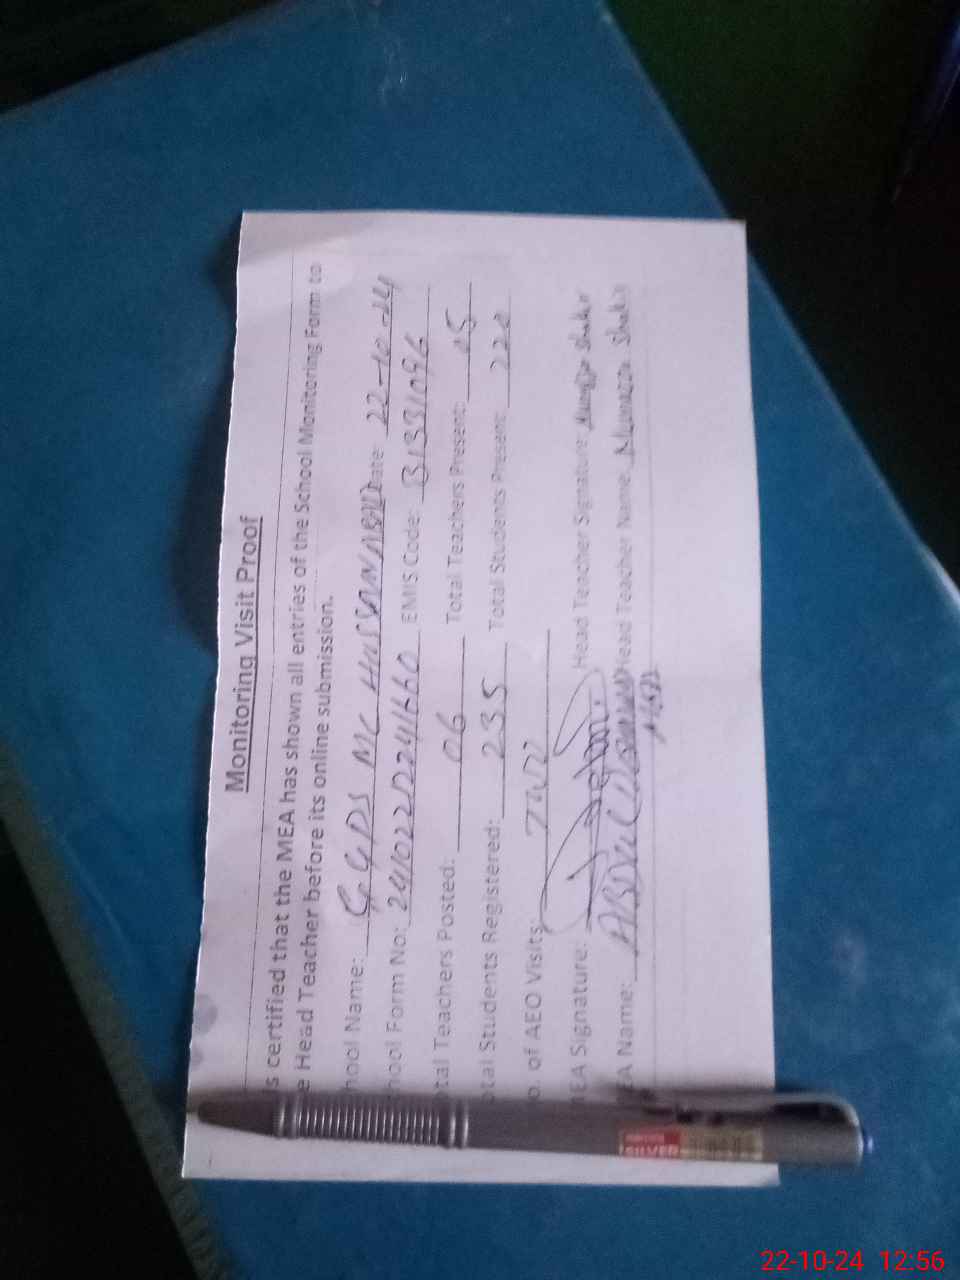 Monitoring Visit Proof
is certified that the MEA has shown all entries of the School Monitoring Form to
e Head Teacher before its online submission.
hool Name: GGPS MC HASSANABAD ate: 22-10-24
hool Form No: 241022D241660 EMIS Code: 31331096
otal Teachers Posted: 06 Total Teachers Present: 05
otal Students Registered: 235 Total Students Present: 222
o. of AEO Visits:
MEA Signature: Head Teacher Signature: Shakir
EA Name: ABDUL Head Teacher Name: Munazza Shakir
SILVER
22-10-24 12:56